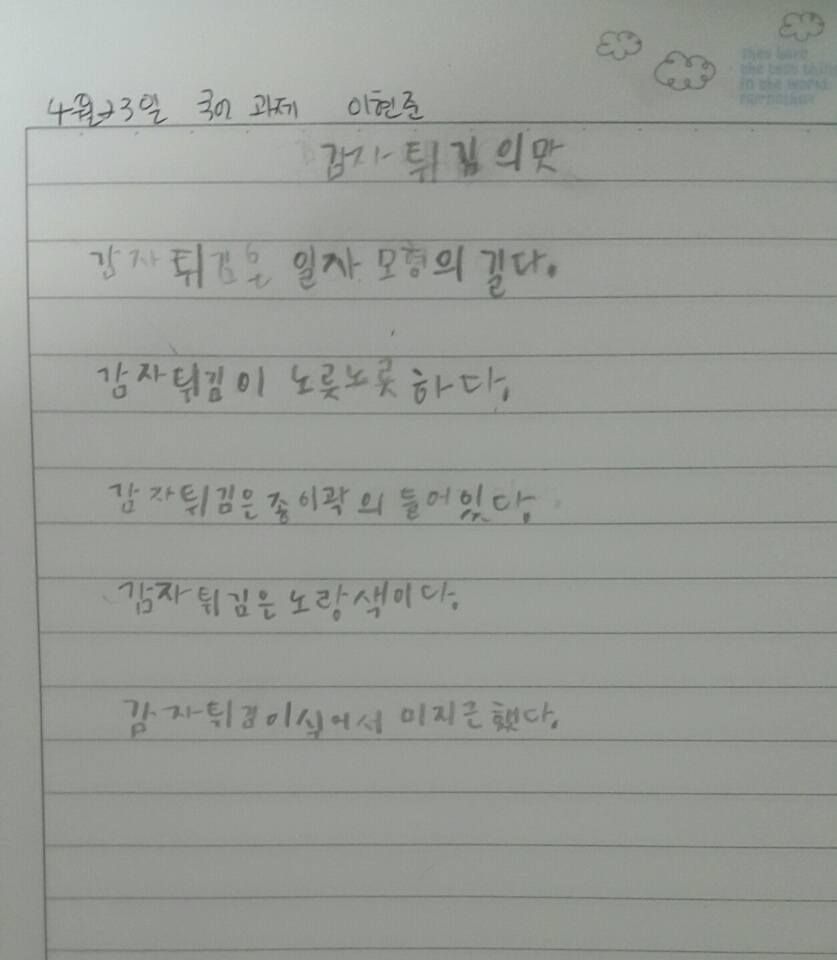 they have
the best thing
in the world
4월23일 국어 과제 이현준
감자 튀김의 맛
감자 튀김은 일자 모형의 길다.
감자튀김이 노릇노릇 하다.
감자튀김은 종이곽의 들어있다.
감자튀김은 노랑색이다.
감자튀김이식어서 미지근했다.